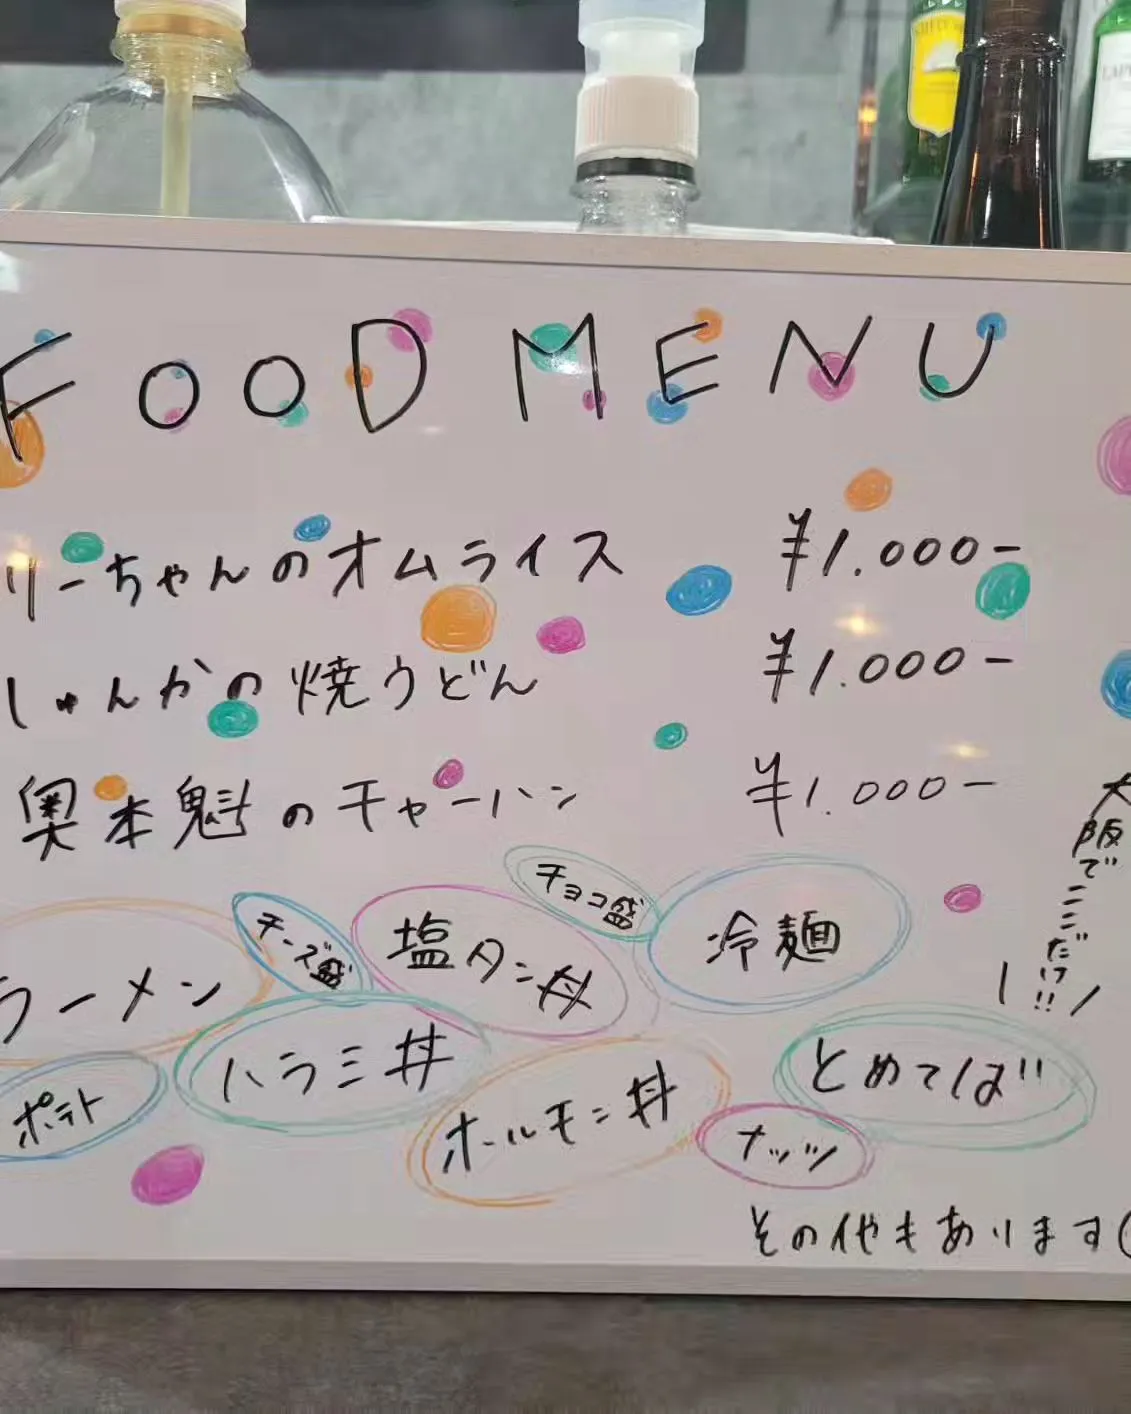 FOOD MENU
リーちゃんのオムライス ¥1.000-
しゅんかの焼うどん ¥1.000-
奥本魁のチャーハン ¥1.000-
大阪でここだけ!!
チョコ盛
チーズ盛
塩タン丼
冷麺
ラーメン
ハラミ丼
とめてば
ポテト
ホルモン丼
ナッツ
その他もあります